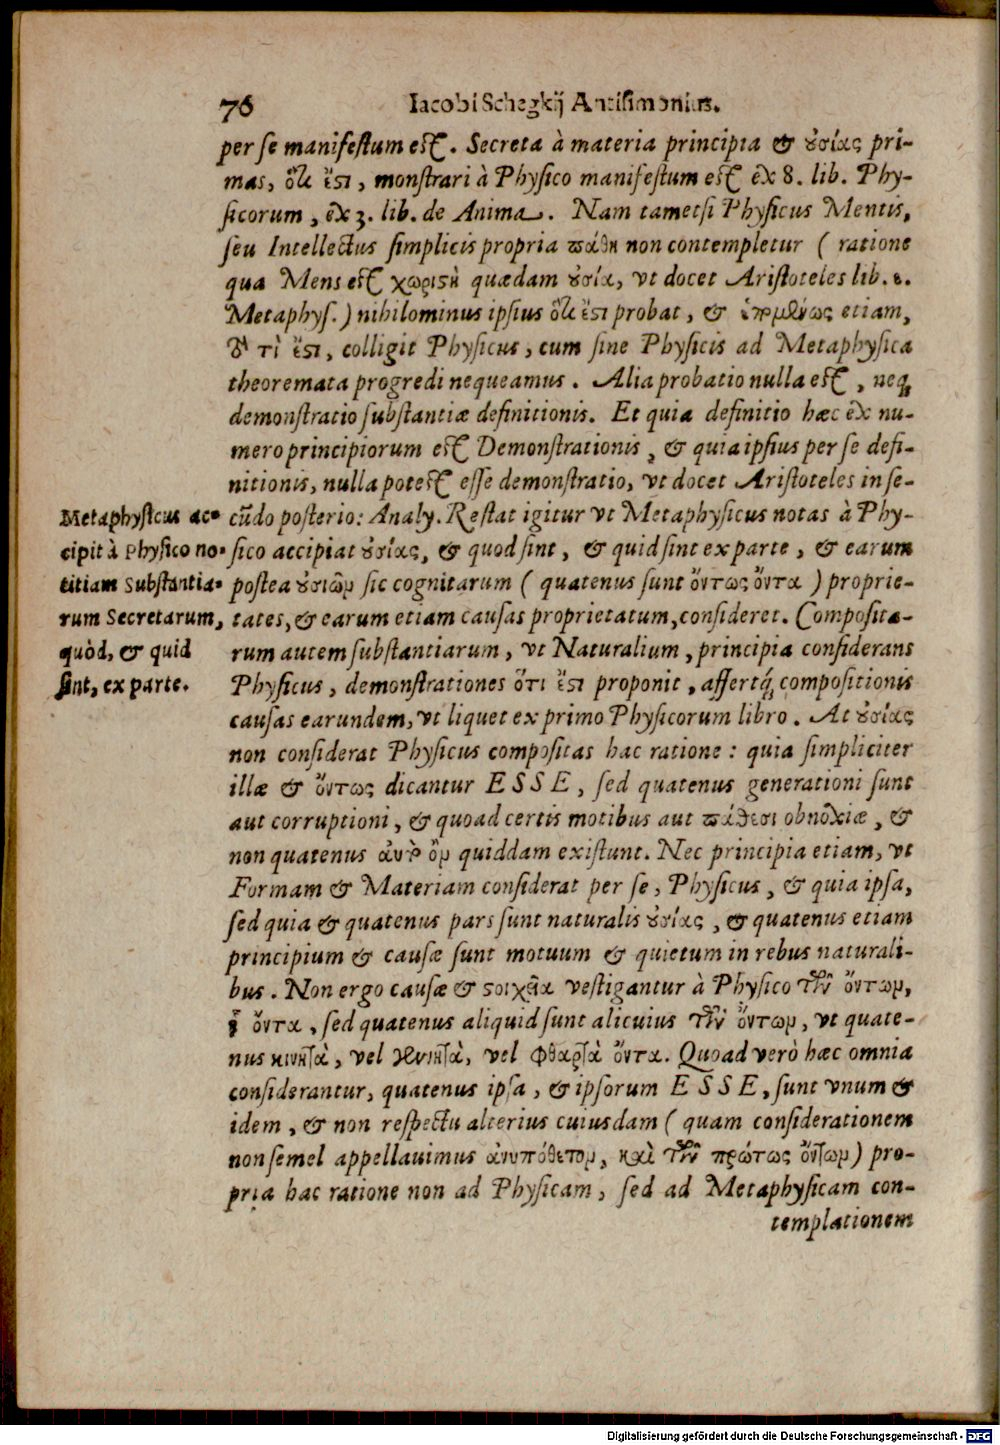 76 Iacobi Schegkij Antisimonius.
per se manifestum est. Secreta à materia principia & ȣσίας pri-
mas, ὅτι ἔστι, monstrari à Physico manifestum est ex 8. lib. Phy-
sicorum, ex 3. lib. de Anima. Nam tametsi Physicus Mentis,
seu Intellectus simplicis propria πάθη non contempletur ( ratione
qua Mens est χωριστὴ quædam ȣσία, vt docet Aristoteles lib. ε.
Metaphys.) nihilominus ipsius ὅτι ἔστι probat, & etiam,
τὸ τὶ ἔστι, colligit Physicus, cum sine Physicis ad Metaphysica
theoremata progredi nequeamus. Alia probatio nulla est, neq́
demonstratio substantiæ definitionis. Et quia definitio hæc ex nu-
mero principiorum est Demonstrationis, & quia ipsius per se defi-
nitionis, nulla potest esse demonstratio, vt docet Aristoteles in se-
cũdo posterio: Analy. Restat igitur vt Metaphysicus notas à Phy-
sico accipiat ȣσίας, & quod sint, & quid sint ex parte, & earum
postea ȣσιῶν sic cognitarum ( quatenus sunt ὄντως ὄντα ) proprie-
tates, & earum etiam causas proprietatum, consideret. Composita-
rum autem substantiarum, vt Naturalium, principia considerans
Physicus, demonstrationes ὅτι ἔστι proponit, affertq́; compositionis
causas earundem, vt liquet ex primo Physicorum libro. At ȣσίας
non considerat Physicus compositas hac ratione: quia simpliciter
illæ & ὄντως dicantur ESSE, sed quatenus generationi sunt
aut corruptioni, & quoad certis motibus aut πάθεσι obnoxiæ, &
non quatenus ὂν quiddam existunt. Nec principia etiam, vt
Formam & Materiam considerat per se, Physicus, & quia ipsa,
sed quia & quatenus pars sunt naturalis ȣσίας, & quatenus etiam
principium & causæ sunt motuum & quietum in rebus naturali-
bus. Non ergo causæ & στοιχεῖα vestigantur à Physico τῶν ὄντων,
ᾗ ὄντα, sed quatenus aliquid sunt alicuius τῶν ὄντων, vt quate-
nus κινητὰ, vel γεννητὰ, vel φθαρτὰ ὄντα. Quoad verò hæc omnia
considerantur, quatenus ipsa, & ipsorum ESSE, sunt vnum &
idem, & non respectu alterius cuiusdam ( quam considerationem
non semel appellauimus ἀνυπόθετον, καὶ τῶν πρώτως ὄντων) pro-
pria hac ratione non ad Physicam, sed ad Metaphysicam con-
templationem
Metaphysicus ac-
cipit à Physico no-
titiam Substantia-
rum Secretarum,
quòd, & quid
sint, ex parte.
Digitalisierung gefördert durch die Deutsche Forschungsgemeinschaft - DFG